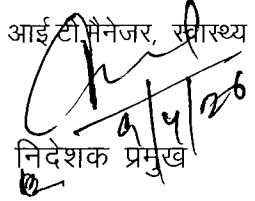 आई.टी.मैनेजर, स्वास्थ्य
9/4/26
निदेशक प्रमुख